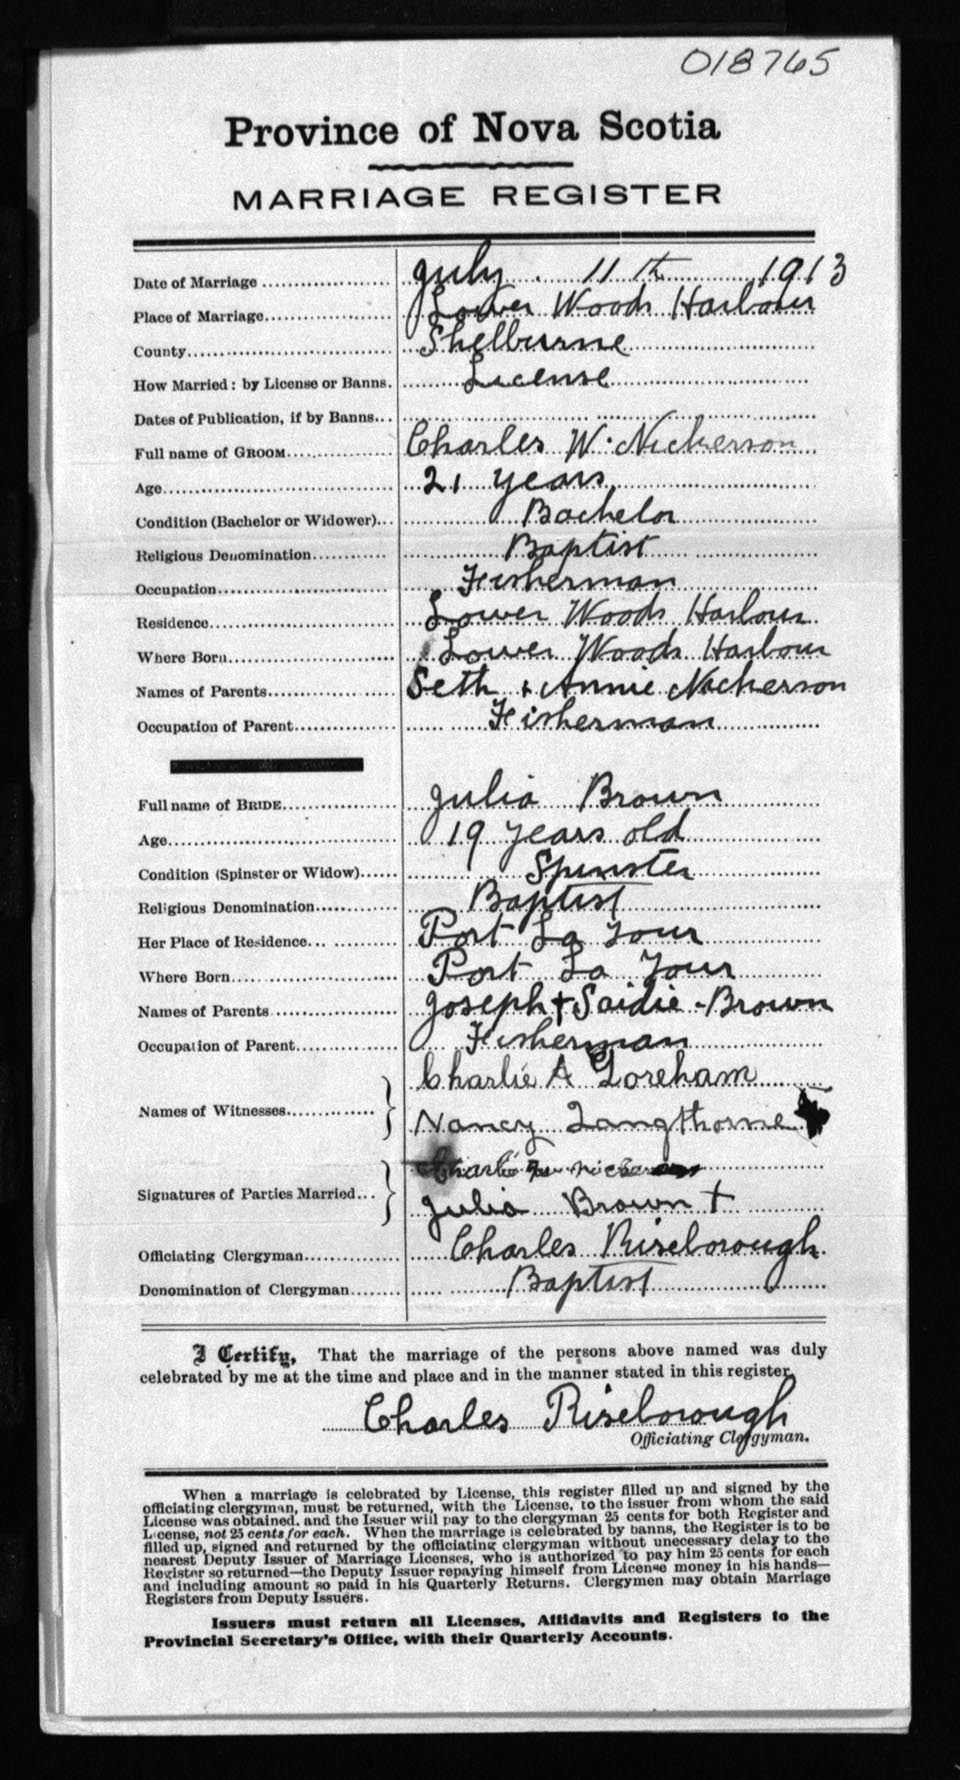 018765
Province of Nova Scotia
MARRIAGE REGISTER
Date of Marriage July 11th 1913
Place of Marriage Lower Woods Harbour
County Shelburne
How Married: by License or Banns. License
Dates of Publication, if by Banns
Full name of GROOM Charles W. Nickerson
Age 21 years
Condition (Bachelor or Widower) Bachelor
Religious Denomination Baptist
Occupation Fisherman
Residence Lower Woods Harbour
Where Born Lower Woods Harbour
Names of Parents Seth + Annie Nickerson
Occupation of Parent Fisherman
Full name of BRIDE Julia Brown
Age 19 years old
Condition (Spinster or Widow) Spinster
Religious Denomination Baptist
Her Place of Residence Port La Tour
Where Born Port La Tour
Names of Parents Joseph + Saidie Brown
Occupation of Parent Fisherman
Charlie A Goreham
Names of Witnesses
Nancy Langthorne
Charlie
Signatures of Parties Married
Julia Brown +
Officiating Clergyman Charles Riseborough
Denomination of Clergyman Baptist
I Certify, That the marriage of the persons above named was duly
celebrated by me at the time and place and in the manner stated in this register.
Charles Riseborough
Officiating Clergyman.
When a marriage is celebrated by License, this register filled up and signed by the
officiating clergyman, must be returned, with the License, to the issuer from whom the said
License was obtained, and the Issuer will pay to the clergyman 25 cents for both Register and
License, not 25 cents for each. When the marriage is celebrated by banns, the Register is to be
filled up, signed and returned by the officiating clergyman without unecessary delay to the
nearest Deputy Issuer of Marriage Licenses, who is authorized to pay him 25 cents for each
Register so returned—the Deputy Issuer repaying himself from License money in his hands—
and including amount so paid in his Quarterly Returns. Clergymen may obtain Marriage
Registers from Deputy Issuers.
Issuers must return all Licenses, Affidavits and Registers to the
Provincial Secretary's Office, with their Quarterly Accounts.